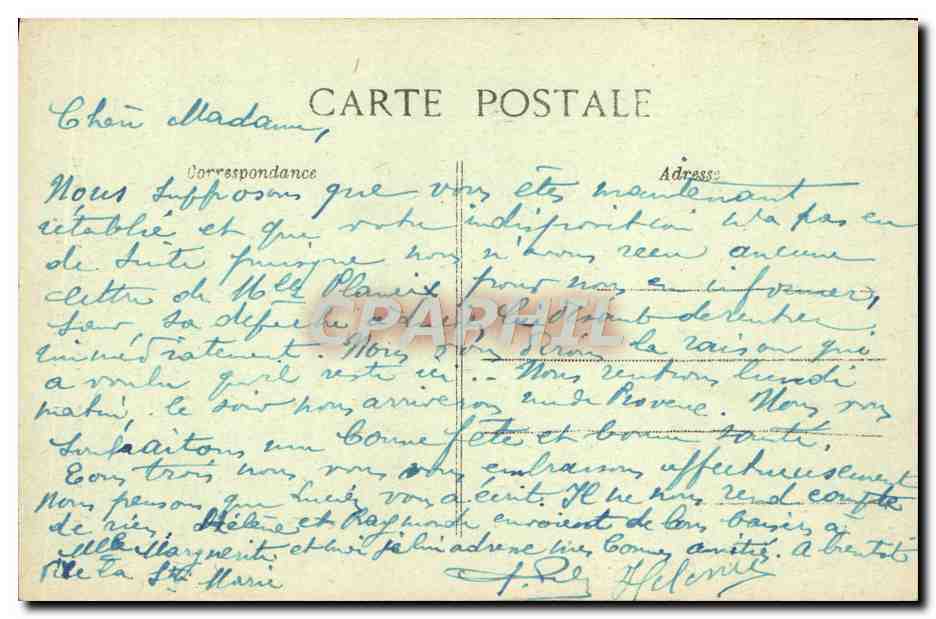 CARTE POSTALE
Chère Madame,
Correspondance
Adresse
Nous supposons que vous êtes maintenant
rétablie et que votre indisposition n'a pas eu
de suite puisque nous n'avons reçu aucune
lettre de Mlle pour nous en informer,
sauf sa dépêche disant de rentrer
immédiatement. Nous vous dirons la raison qui
a voulu qu'il reste ici.. Nous rentrons lundi
matin. le soir nous arriverons rue de Provence. Nous vous
souhaitons une bonne fête et bonne santé.
Tous trois nous vous embrassons affectueusement
Nous pensons que Lucien vous a écrit. Il ne nous rend compte
de rien. Hélène et Raymonde envoient de bons baisers à
Mlle Marguerite et moi je lui adresse mes bonnes amitiés. A bientôt
Ste Marie
CARPHIL